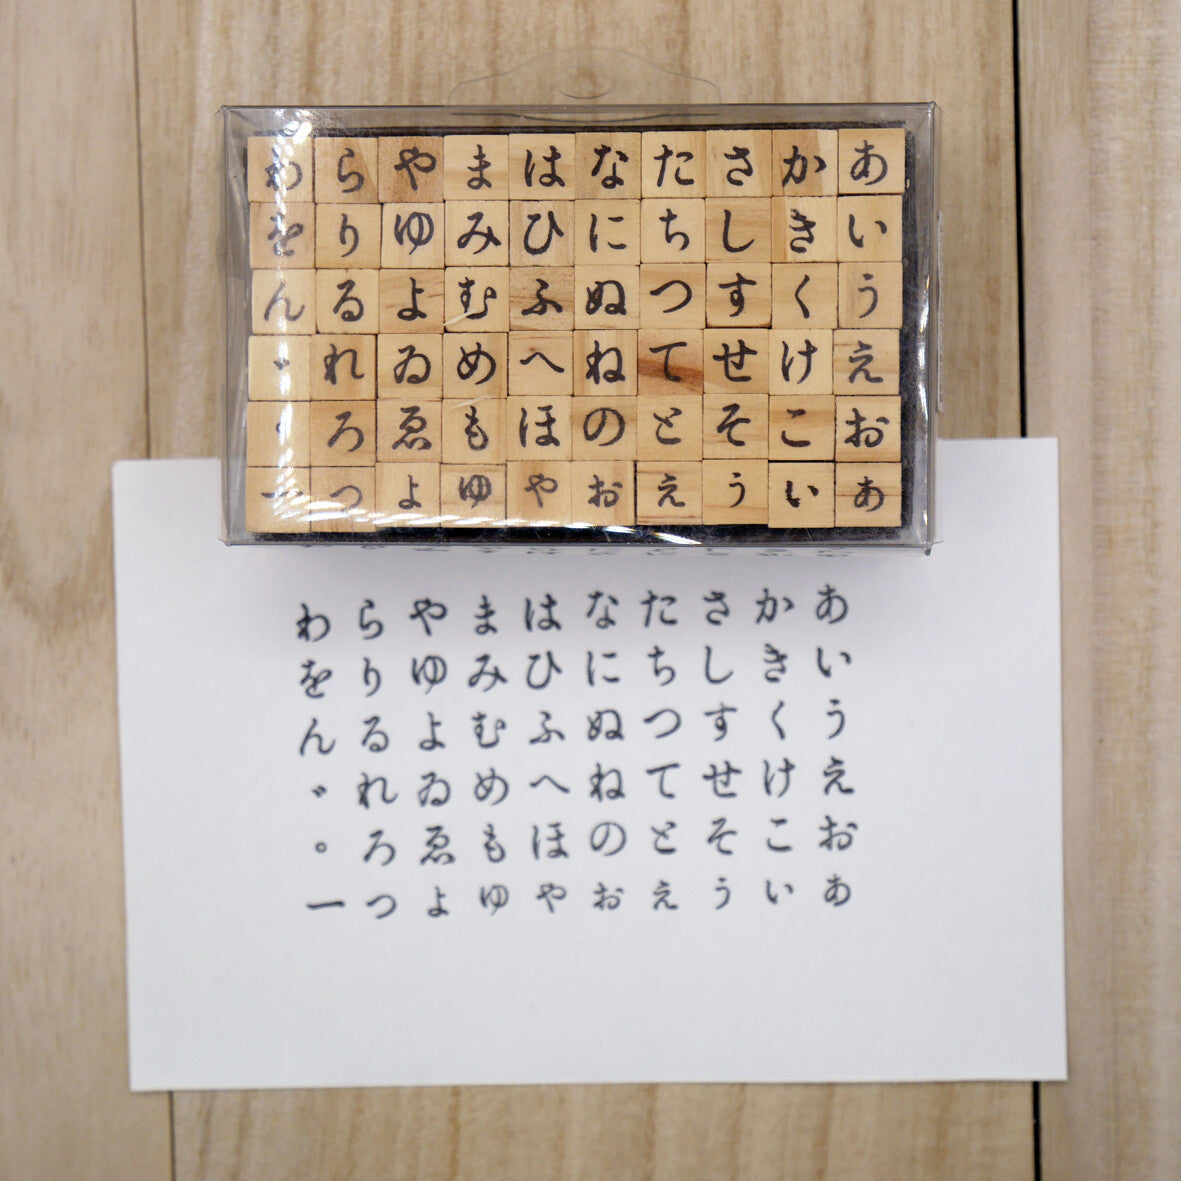 あいうえおぁ
かきくけこぃ
さしすせそぅ
たちつてとぇ
なにぬねのぉ
はひふへほゃ
まみむめもゅ
やゆよゐゑょ
らりるれろっ
わをん゛゜ー
あいうえおぁ
かきくけこぃ
さしすせそぅ
たちつてとぇ
なにぬねのぉ
はひふへほゃ
まみむめもゅ
やゆよゐゑょ
らりるれろっ
わをん゛゜ー